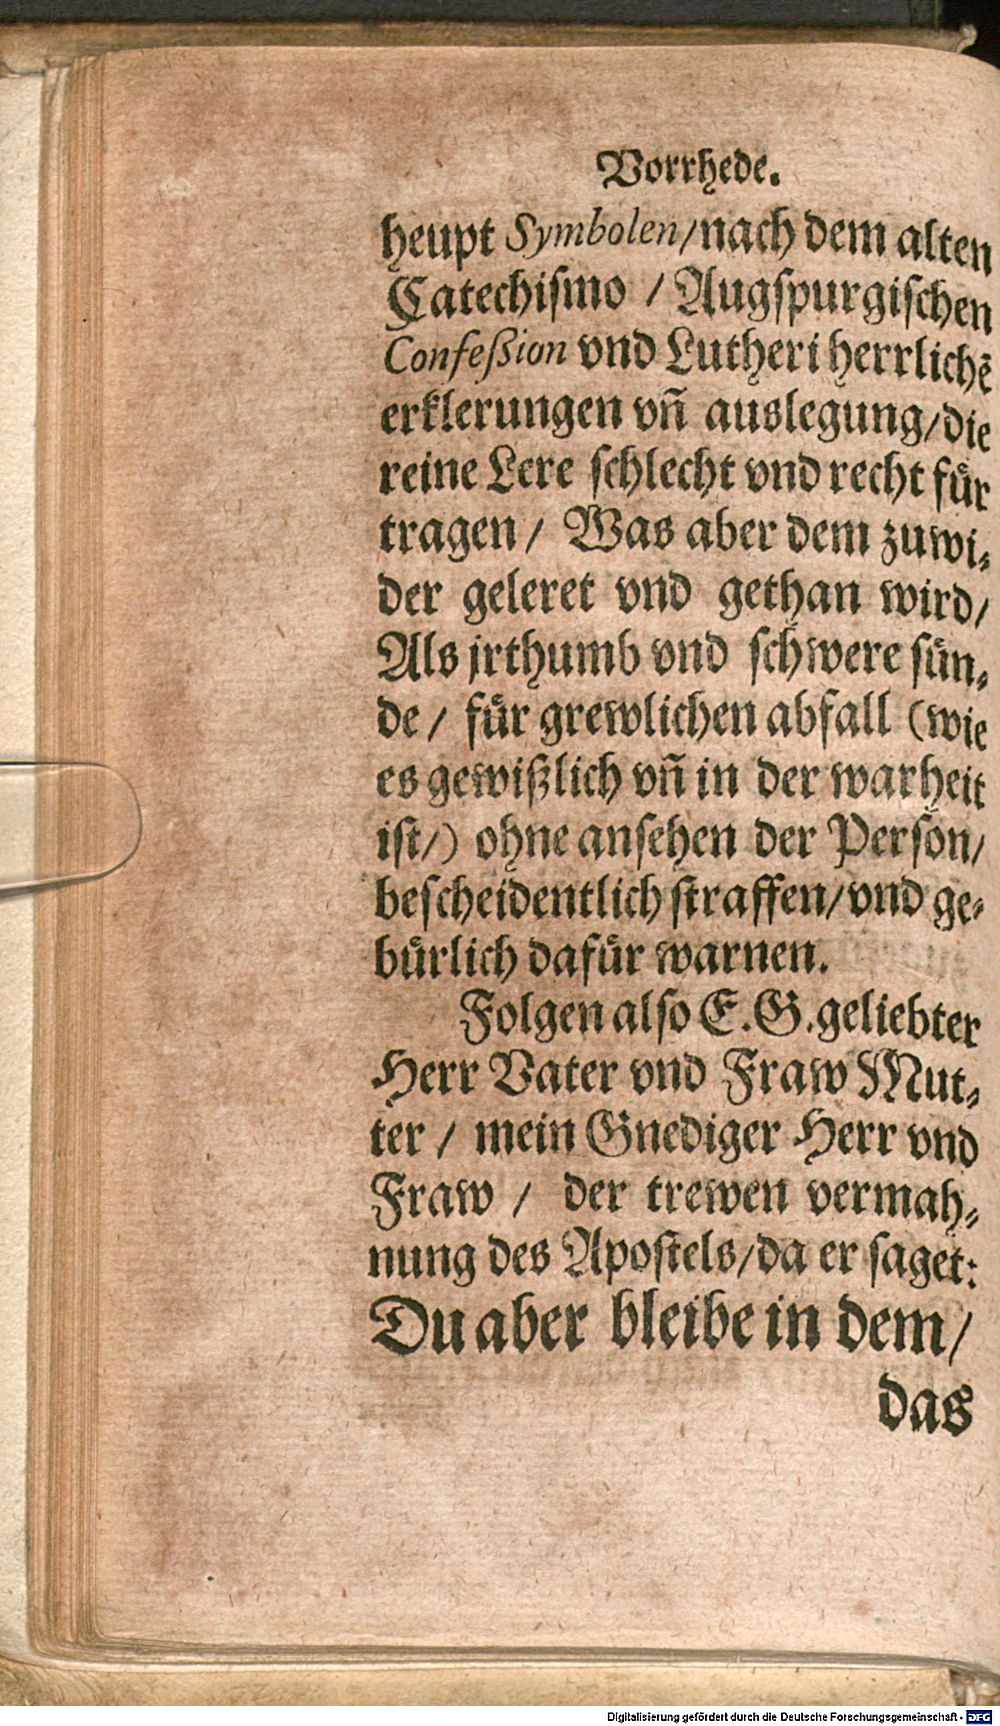 Vorrhede.
heupt Symbolen/nach dem alten
Catechiſmo / Augſpurgiſchen
Confeßion vnd Lutheri herrlichẽ
erklerungen vñ auslegung/die
reine Lere ſchlecht vnd recht fuͤr
tragen / Was aber dem zuwi⸗
der geleret vnd gethan wird/
Als jrthumb vnd ſchwere ſuͤn⸗
de / fuͤr grewlichen abfall (wie
es gewißlich vñ in der warheit
iſt/) ohne anſehen der Perſon/
beſcheidentlich ſtraffen/vnd ge⸗
buͤrlich dafuͤr warnen.
Folgen alſo E.G.geliebter
Herr Vater vnd Fraw Mut⸗
ter / mein Gnediger Herr vnd
Fraw / der trewen vermah⸗
nung des Apoſtels/da er ſaget:
Du aber bleibe in dem/
das
Digitalisierung gefördert durch die Deutsche Forschungsgemeinschaft - DFG